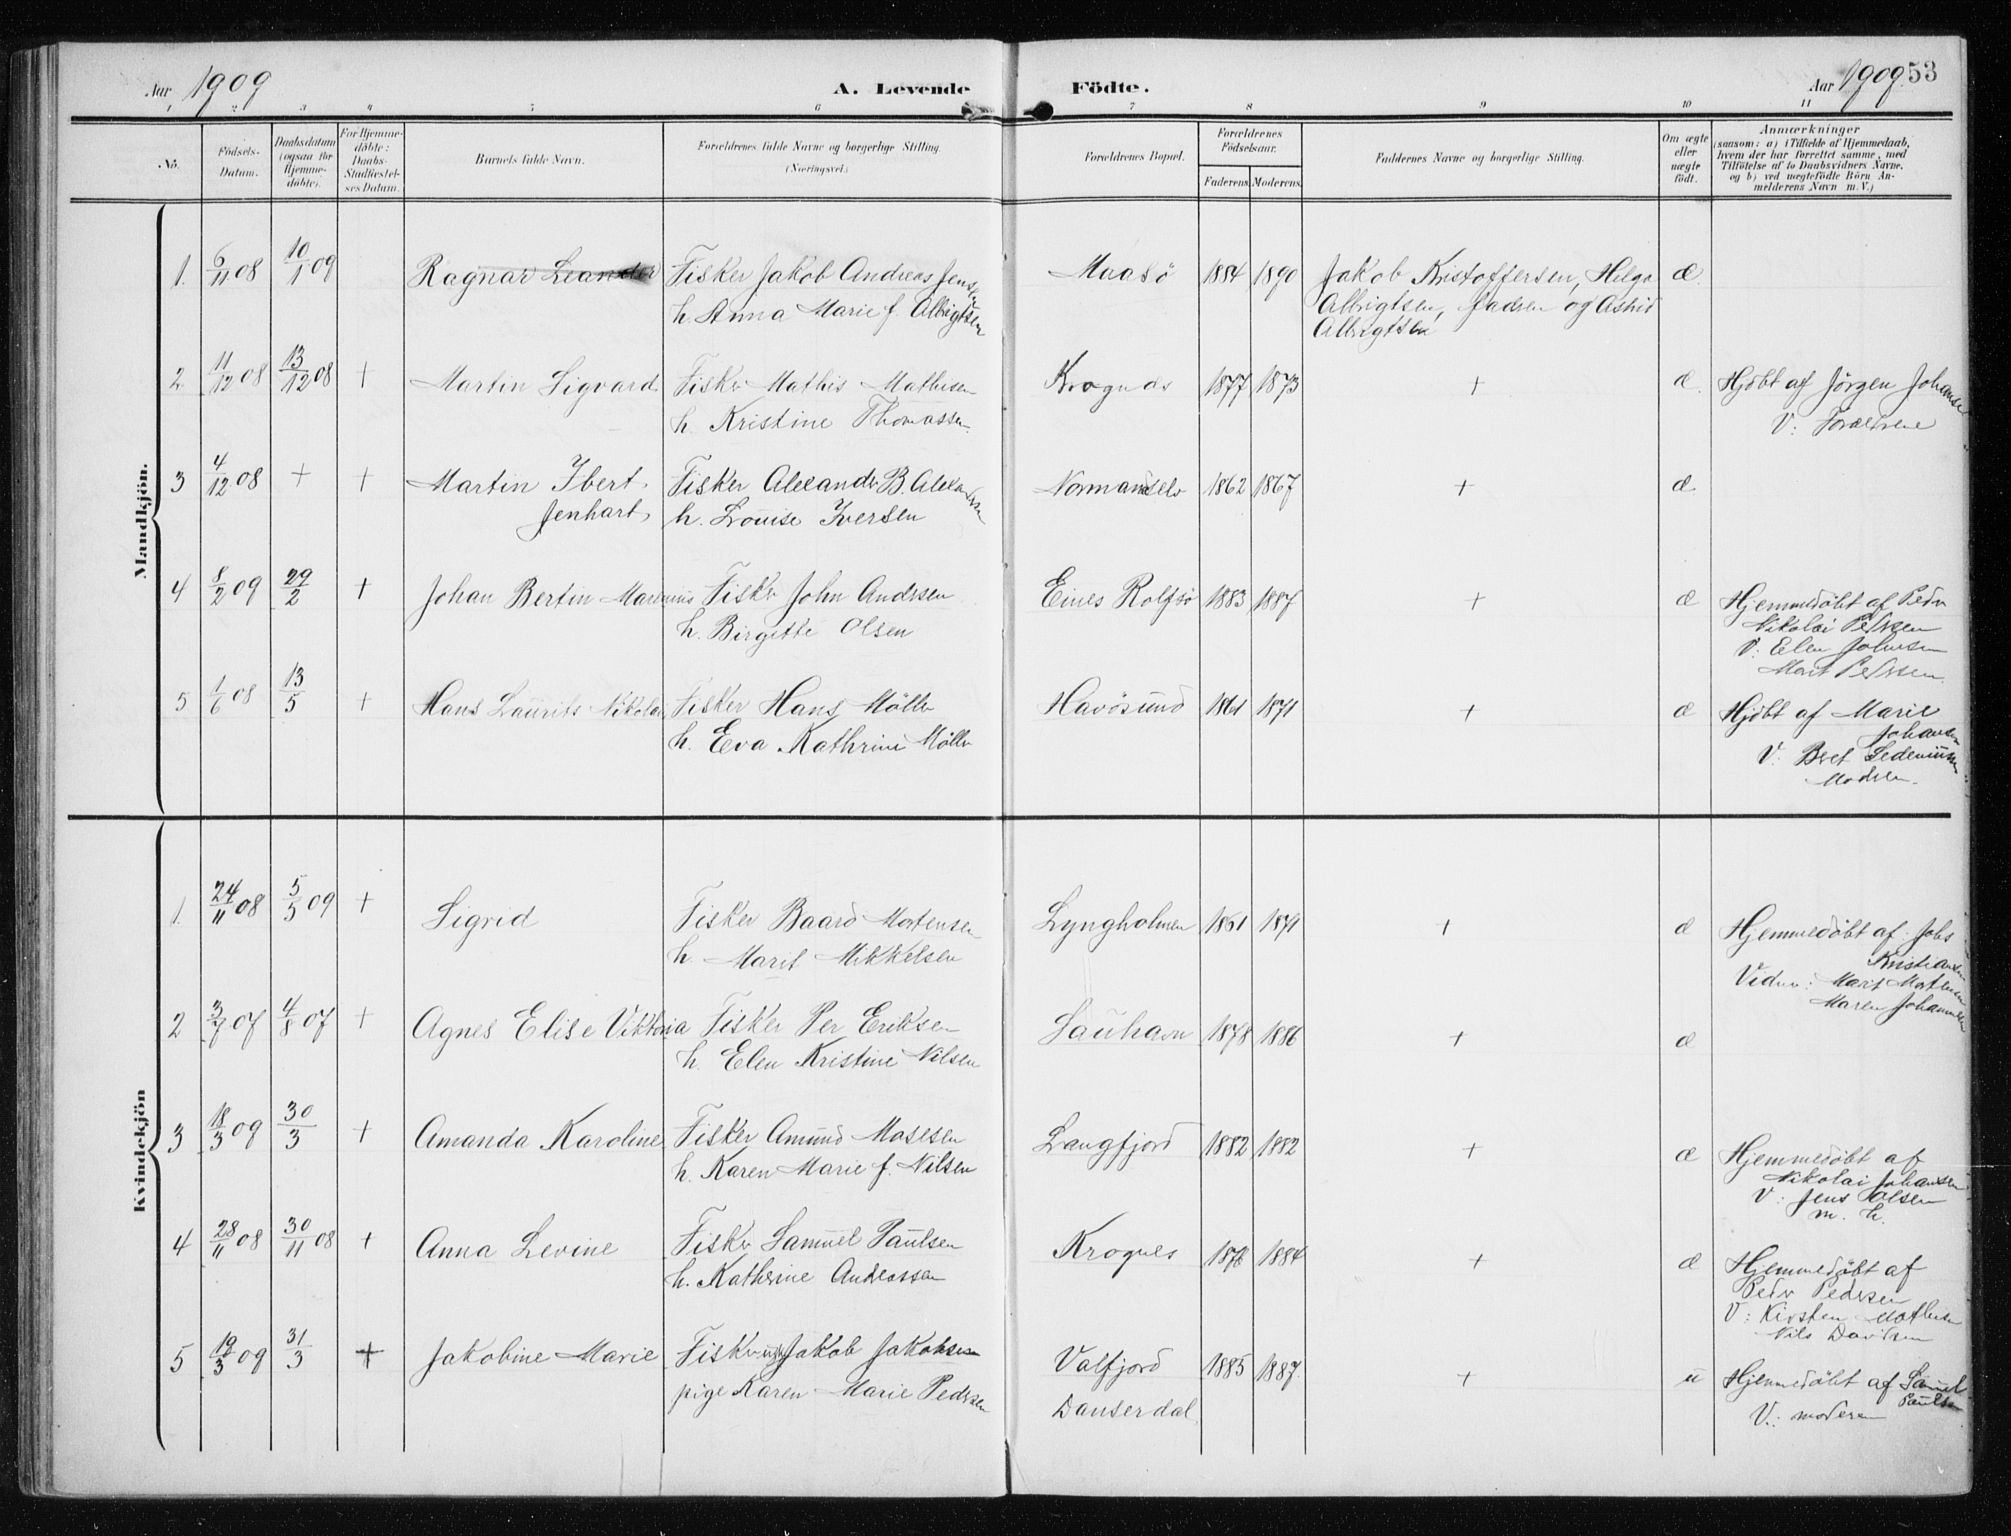 Aar 1909 A. Levende Födte. Aar 1909. 53
1 2 3 4 5 6 7 8 9 10 11
No. Födsels-Datum. Daabsdatum (ogsaa for Hjemme-döbte). For Hjemme-döbte: Daabs-Stadfæstel-ses Datum. Barnets fulde Navn. Forældrenes fulde Navne og borgerlige Stilling. (Næringsvei) Forældrenes Bopæl. Forældrenes Födselsaar. Faderens. Moderens. Faddernes Navne og borgerlige Stilling. Om ægte eller uægte födt. Anmærkninger (saasom: a) i Tilfælde af Hjemmedaab, hvem der har forrettet samme, med Tilföielse af to Daabsvidners Navne, og b) ved uægtefödte Börn An-melderens Navn m. V.)
Mandkjön.
1. 6/11 08 10/1 09 Ragnar Leander Fisker Jakob Andreas Jensen Maasö 1884 1890 Jakob Kristoffersen, Helga æ.
h. Anna Marie f. Albrigtsen Albrigtsen, Fadren og Astrid
Albrigtsen
2. 11/12 08 13/12 08 + Martin Sigvard Fisker Mathis Mathisen Krognes 1877 1873 + æ. Hjdbt af Jörgen Johansen
h. Kristine Thomassen. V: Foreldrene
3 4/12 08 + + Martin Ibert Fisker Alexander B. Alexandersen 1862 1867 + æ
Jenhart h. Louise Iversen
4 8/2 09 29/2 + Johan Bertin Marenius Fisker John Andrsen Eines Rolfsö 1883 1887 + æ Hjemmedöbt af Pedr
h. Birgitte Olsen Nikolai Pedrsen
V: Elen Johnsen
Marit Pedrsen.
5 1/6 08 13/5 + Hans Laurits Nikolai Fisker Hans Möller Havösund 1861 1871 + æ Hjdbt af Marie
h. Eva Kathrine Möller Johansen
V: Bret
Modren.
Kvindekjön
1. 24/11 08 5/5 09 + Sigrid Fisker Baard Mortensen Lyngholmen 1861 1871 + æ Hjemmedöbt af Johs
h. Marit Mikkelsen Kristiansen
Vidner: Marit Mortensen
Maren Johannesen
2 3/7 07 4/8 07 + Agnes Elise Viktoria Fisker Per Eriksen Sauhavn 1878 1886 + æ
h. Elen Kristine Nilsen
3 18/3 09 30/3 + Amanda Karoline Fisker Amund Mosesen Langfjord 1882 1882 + æ Hjemmedöbt af
h. Karen Marie f. Nilsen Nikolai Johansen
V: Jens Olsen
m. h.
4 28/11 08 30/11 08 + Anna Levine Fisker Samuel Paulsen Krognes 1878 1884 + æ Hjemmedöbt af
h. Kathrine Andreassen Pedr Pedrsen
V: Kirsten Mathisen
Nils Davidsen
5 19/3 09 31/3 + Jakobine Marie Fisker Jakob Jakobsen Valfjord 1885 1887. + u Hjemmedöbt af Samuel
pige Karen Marie Pedrsen Danserdal Paulsen
V: moderen